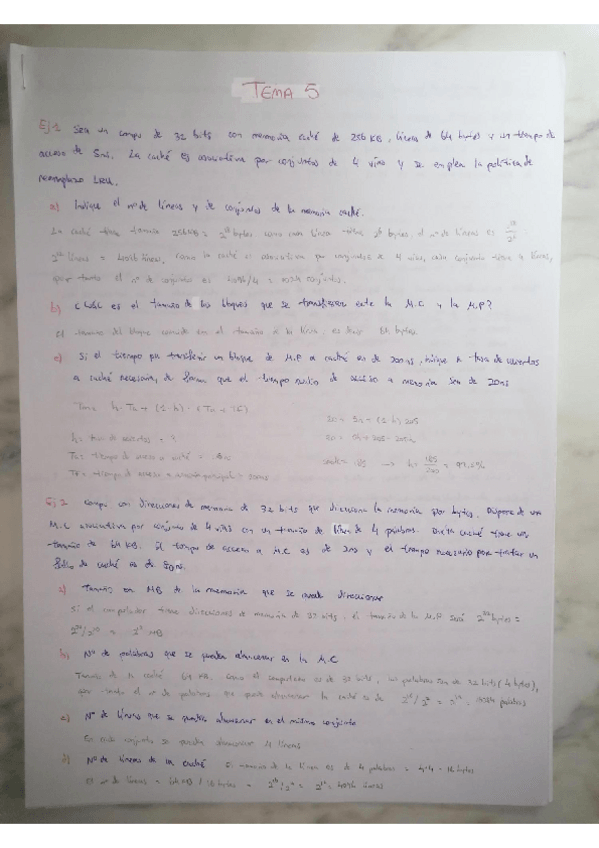 TEMA 5
Ej 1 Sea un compu de 32 bits con memoria caché de 256 KB, líneas de 64 bytes y un tiempo de
acceso de 5ns. La caché es asociativa por conjuntos de 4 vías y se emplea la política de
reemplazo LRU.
a) Indique el nº de líneas y de conjuntos de la memoria caché.
La caché tiene tamaño 256KB = 2^18 bytes como cada línea tiene 2^6 bytes, el nº de líneas es 2^18/2^6
2^12 líneas = 4096 líneas, como la caché es asociativa por conjuntos de 4 vías, cada conjunto tiene 4 líneas,
por tanto el nº de conjuntos es 4096/4 = 1024 conjuntos.
b) ¿Cuál es el tamaño de los bloques que se transfieren entre la M.C y la M.P?
El tamaño del bloque coincide con el tamaño de la línea, es decir 64 bytes.
c) Si el tiempo para transferir un bloque de M.P a caché es de 200ns, indique la tasa de aciertos
a caché necesaria, de forma que el tiempo medio de acceso a memoria sea de 20ns
20 = 5h + (1-h) 205
h = tasa de aciertos = ?
20 = 5h + 205 - 205h
200h = 185 → h = 185/200 = 92,5%
Ej 2 compu con direcciones de memoria de 32 bits que direcciona la memoria por bytes. Dispone de una
M.C asociativa por conjunto de 4 vías con un tamaño de línea de 4 palabras. Dicha caché tiene un
tamaño de 64 KB. El tiempo de acceso a M.C es de 2ns y el tiempo necesario para tratar un
fallo de caché es de
a) Tamaño en MB de la memoria que se puede direccionar
Si el computador tiene direcciones de memoria de 32 bits, el tamaño de la M.P será 2^32 bytes =
2^32/2^20 = MB
b) Nº de palabras que se pueden almacenar en la M.C
Tamaño de la caché 64 KB. Como el computador es de 32 bits, las palabras son de 32 bits (4 bytes),
por tanto el nº de palabras que puede almacenar la caché es de 2^16/2^2 = 2^14 = 16384 palabras
c) Nº de líneas que se pueden almacenar en el mismo conjunto
En cada conjunto se pueden almacenar 4 líneas
d) Nº de líneas de la caché El tamaño de la línea es de 4 palabras = 4·4 = 16 bytes
El nº de líneas = 64 KB / 16 bytes = 2^16/2^4 = 2^12 = 4096 líneas